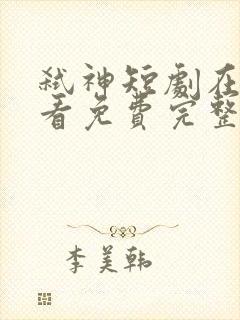 弑神短劇在
看免費完整
李美韩